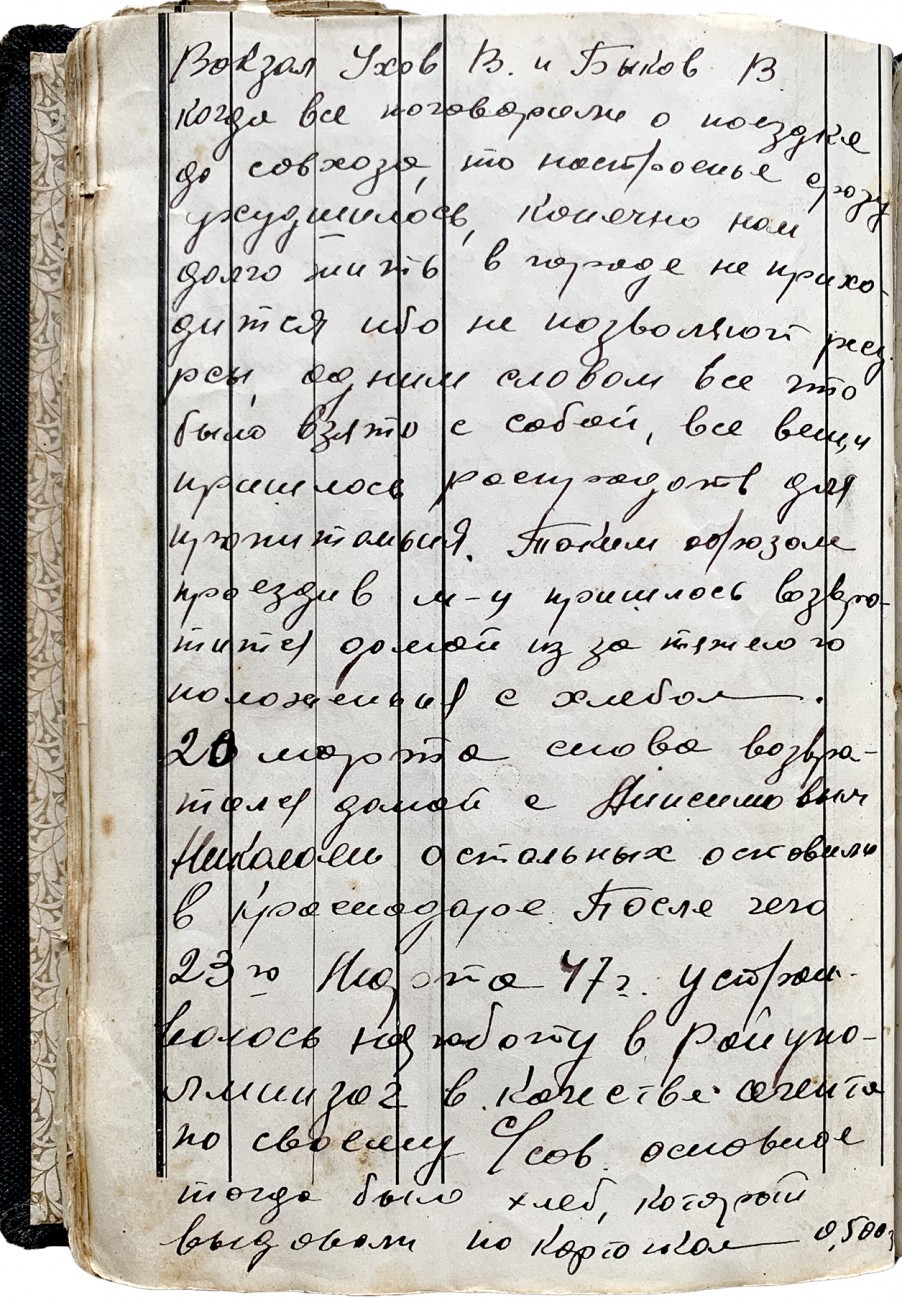 Вокзал Ухов В. и Быков В
когда все поговорили о поездке
до совхоза, то настроенье сразу
ухудшилось, конечно нам
долго жить в городе не прихо-
дится ибо не позволяют ресу-
рсы, одним словом все что
было взято с собой, все вещи
пришлось распродать для
пропитанья. Таким образом
проездив м-ц пришлось возвра-
титься домой из за тяжелого
положенья с хлебом.
20 марта снова возвра-
тился домой с Анисимович
Николаем остальных оставили
в Краснодаре. После чего
23го Марта 47г. устраи-
валось на работу в Райупо-
лминзаг в качестве агента
по своему основное
тогда было хлеб, который
выдавали по карточкам 0,500г